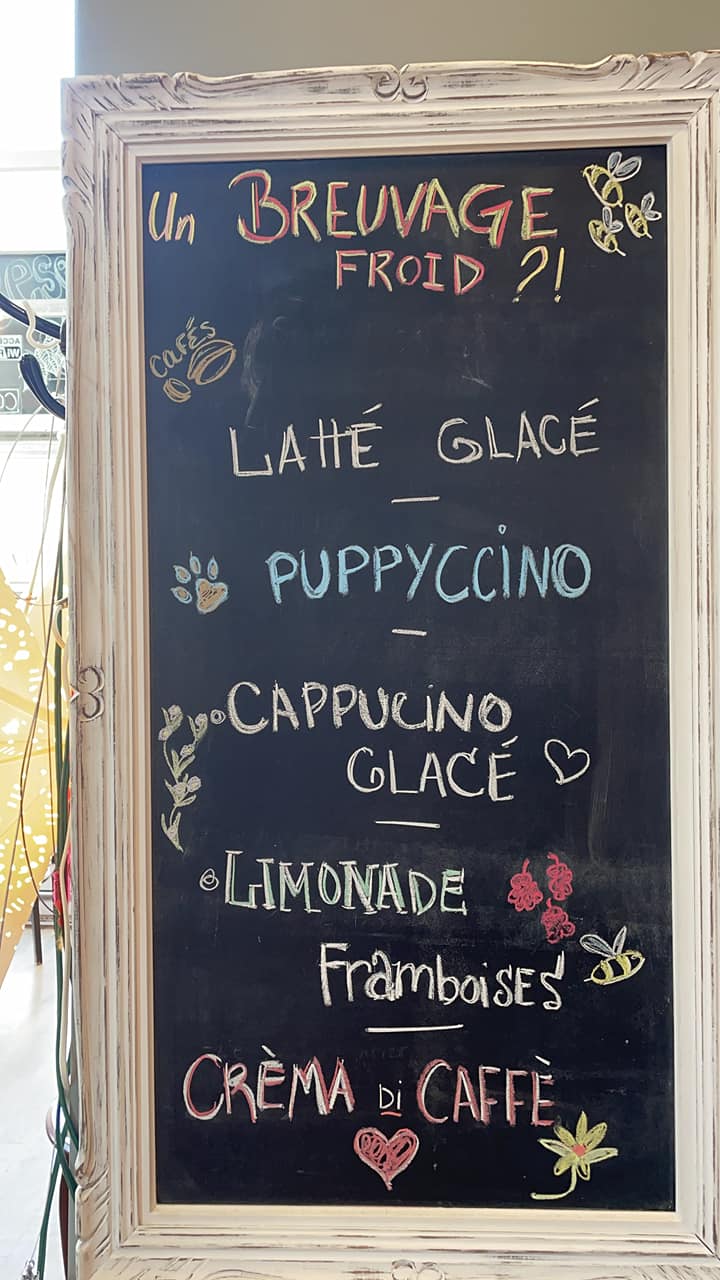 Un BREUVAGE
FROID ?!
Cafés
LATTÉ GLACÉ
PUPPYCCiNO
CAPPUCiNO
GLACÉ
LIMONADE
FramboisES
CRÈMA Di CAFFÈ